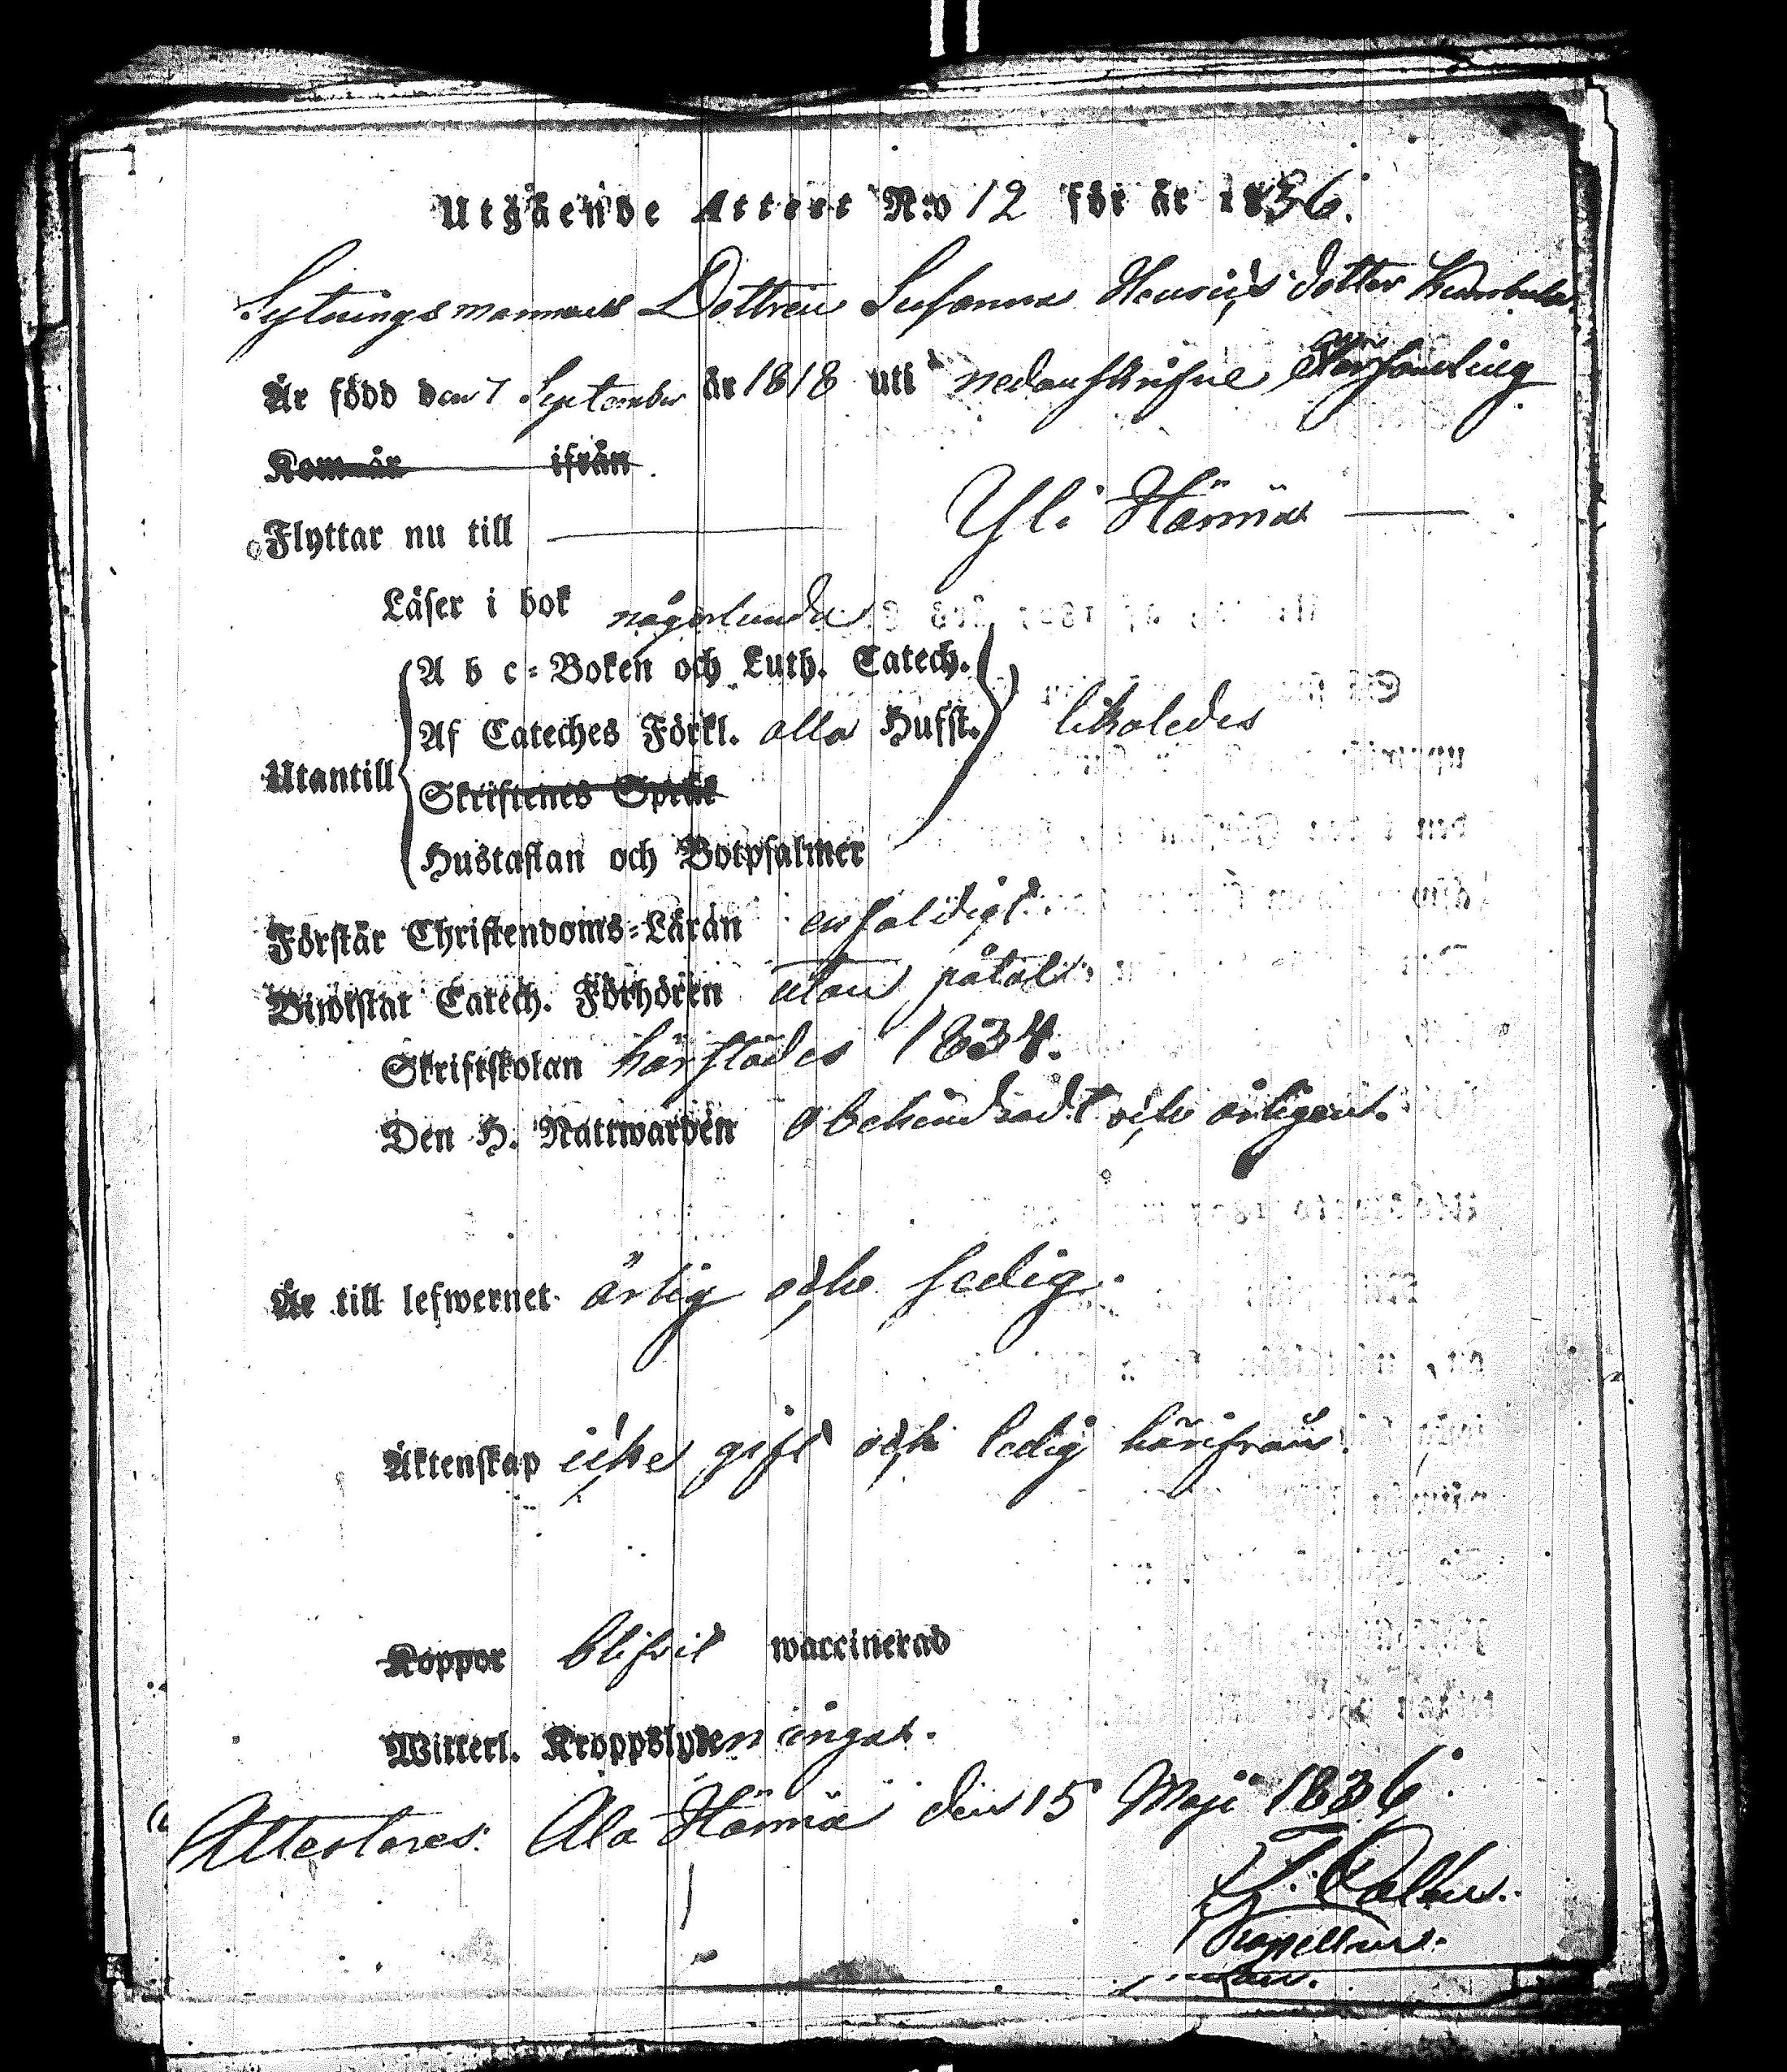 Utgående Attest N:o 12 för år 1836.
Sytningsmannens Dottren Susanna Henrics dotter
Är född den 7 September år 1818 uti nedanskrifne Församling
Kom år ifrån
Flyttar nu till Yli Hännä
Läser i bok någorlunda
A b c-Boken och Luth. Catech.
Af Cateches Förkl. alla Husst. likaledes
Utantill
Skriftenes Språk
Hustaflan och Botpsalmer
Förstår Christendoms-Läran enfaldigt
Biwistat Catech. Förhören utan påtal
Skriftskolan härstädes 1834.
Den H. Nattwarden obehindradt och årligen
Är till lefwernet ärlig och sedig.
Äktenskap icke gift och ledig härifrån.
Koppor blifvit waccinerad
Witterl. Kroppslyten inga.
Attesteres. Ala Hännä den 15 Maji 1836.
Kapellan